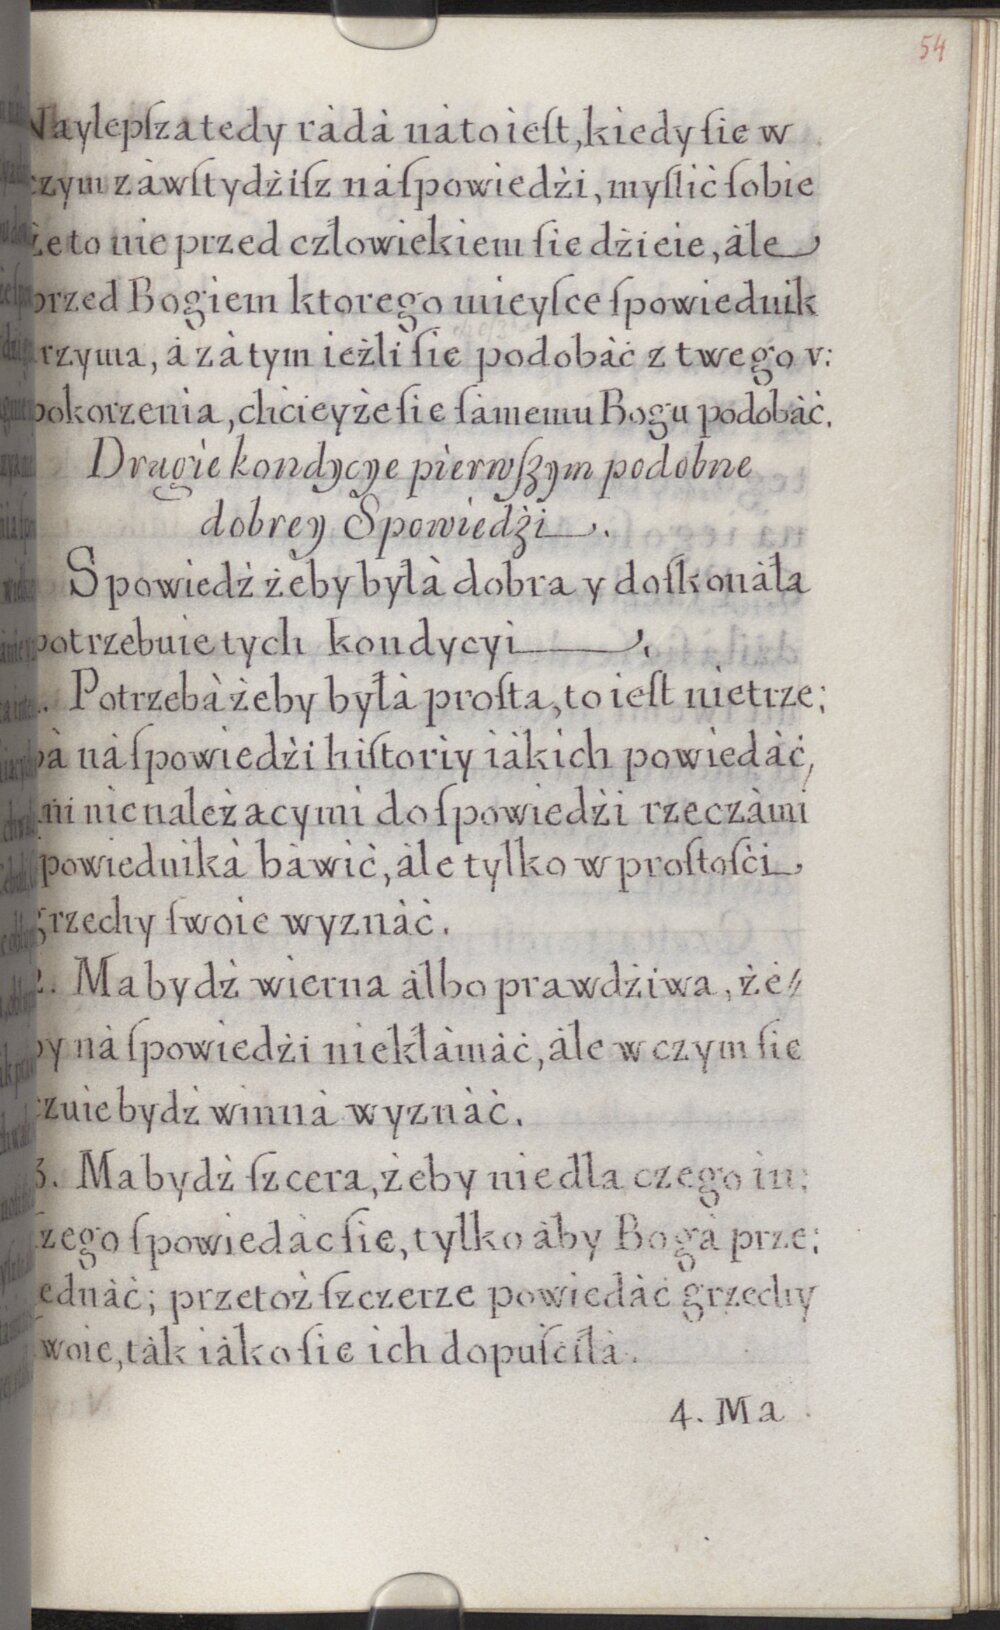 54
Naylepſza tedy ràdà nà to ieſt, kiedy ſie w
czym zàwſtydźiſz nà ſpowiedźi, myſlić ſobie
że to nie przed człowiekiem ſie dźieie, àle
przed Bogiem ktorego mieyſce ſpowiednik
trzyma, à zà tym ieżli ſie podobàć z twego v:
pokorzenia, chcieyże ſie ſàmemu Bogu podobàć.
Drugie kondycye pierwſzym podobne
dobrey Spowiedźi.
Spowiedź żeby byłà dobra y doſkonàła
potrzebuie tych kondycyi.
1. Potrzebà żeby byłà proſta, to ieſt nietrze:
bà nà ſpowiedźi hiſtoriy iàkich powiedàć,
àni nie należacymi do ſpowiedźi rzeczàmi
ſpowiednikà bàwić, àle tylko w proſtoſći
grzechy ſwoie wyznàć.
2. Ma bydź wierna àlbo prawdźiwa, że⸗
by nà ſpowiedźi niekłàmàć, àle w czym ſie
czuie bydź winnà wyznàć.
3. Ma bydź ſzcera, żeby nie dla czego in:
ſzego ſpowiedàć ſie, tylko àby Bogà prze:
iednàć; przetoż ſzczerze powiedàć grzechy
ſwoie, tàk iàko ſie ich dopuſćiłà.
4. Ma